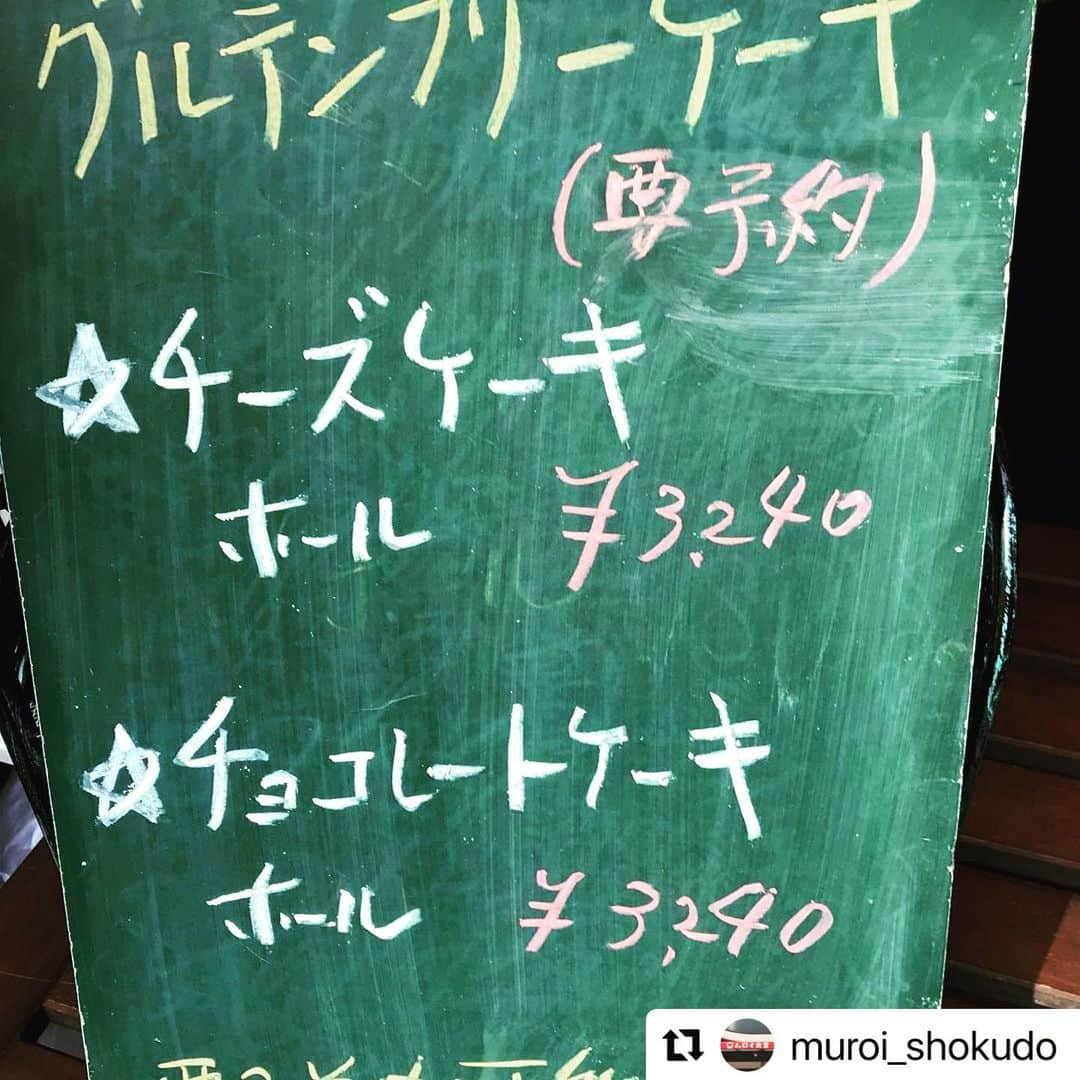 グルテンフリーケーキ
(要予約)
☆チーズケーキ
ホール ¥3,240
☆チョコレートケーキ
ホール ¥3,240
muroi_shokudo